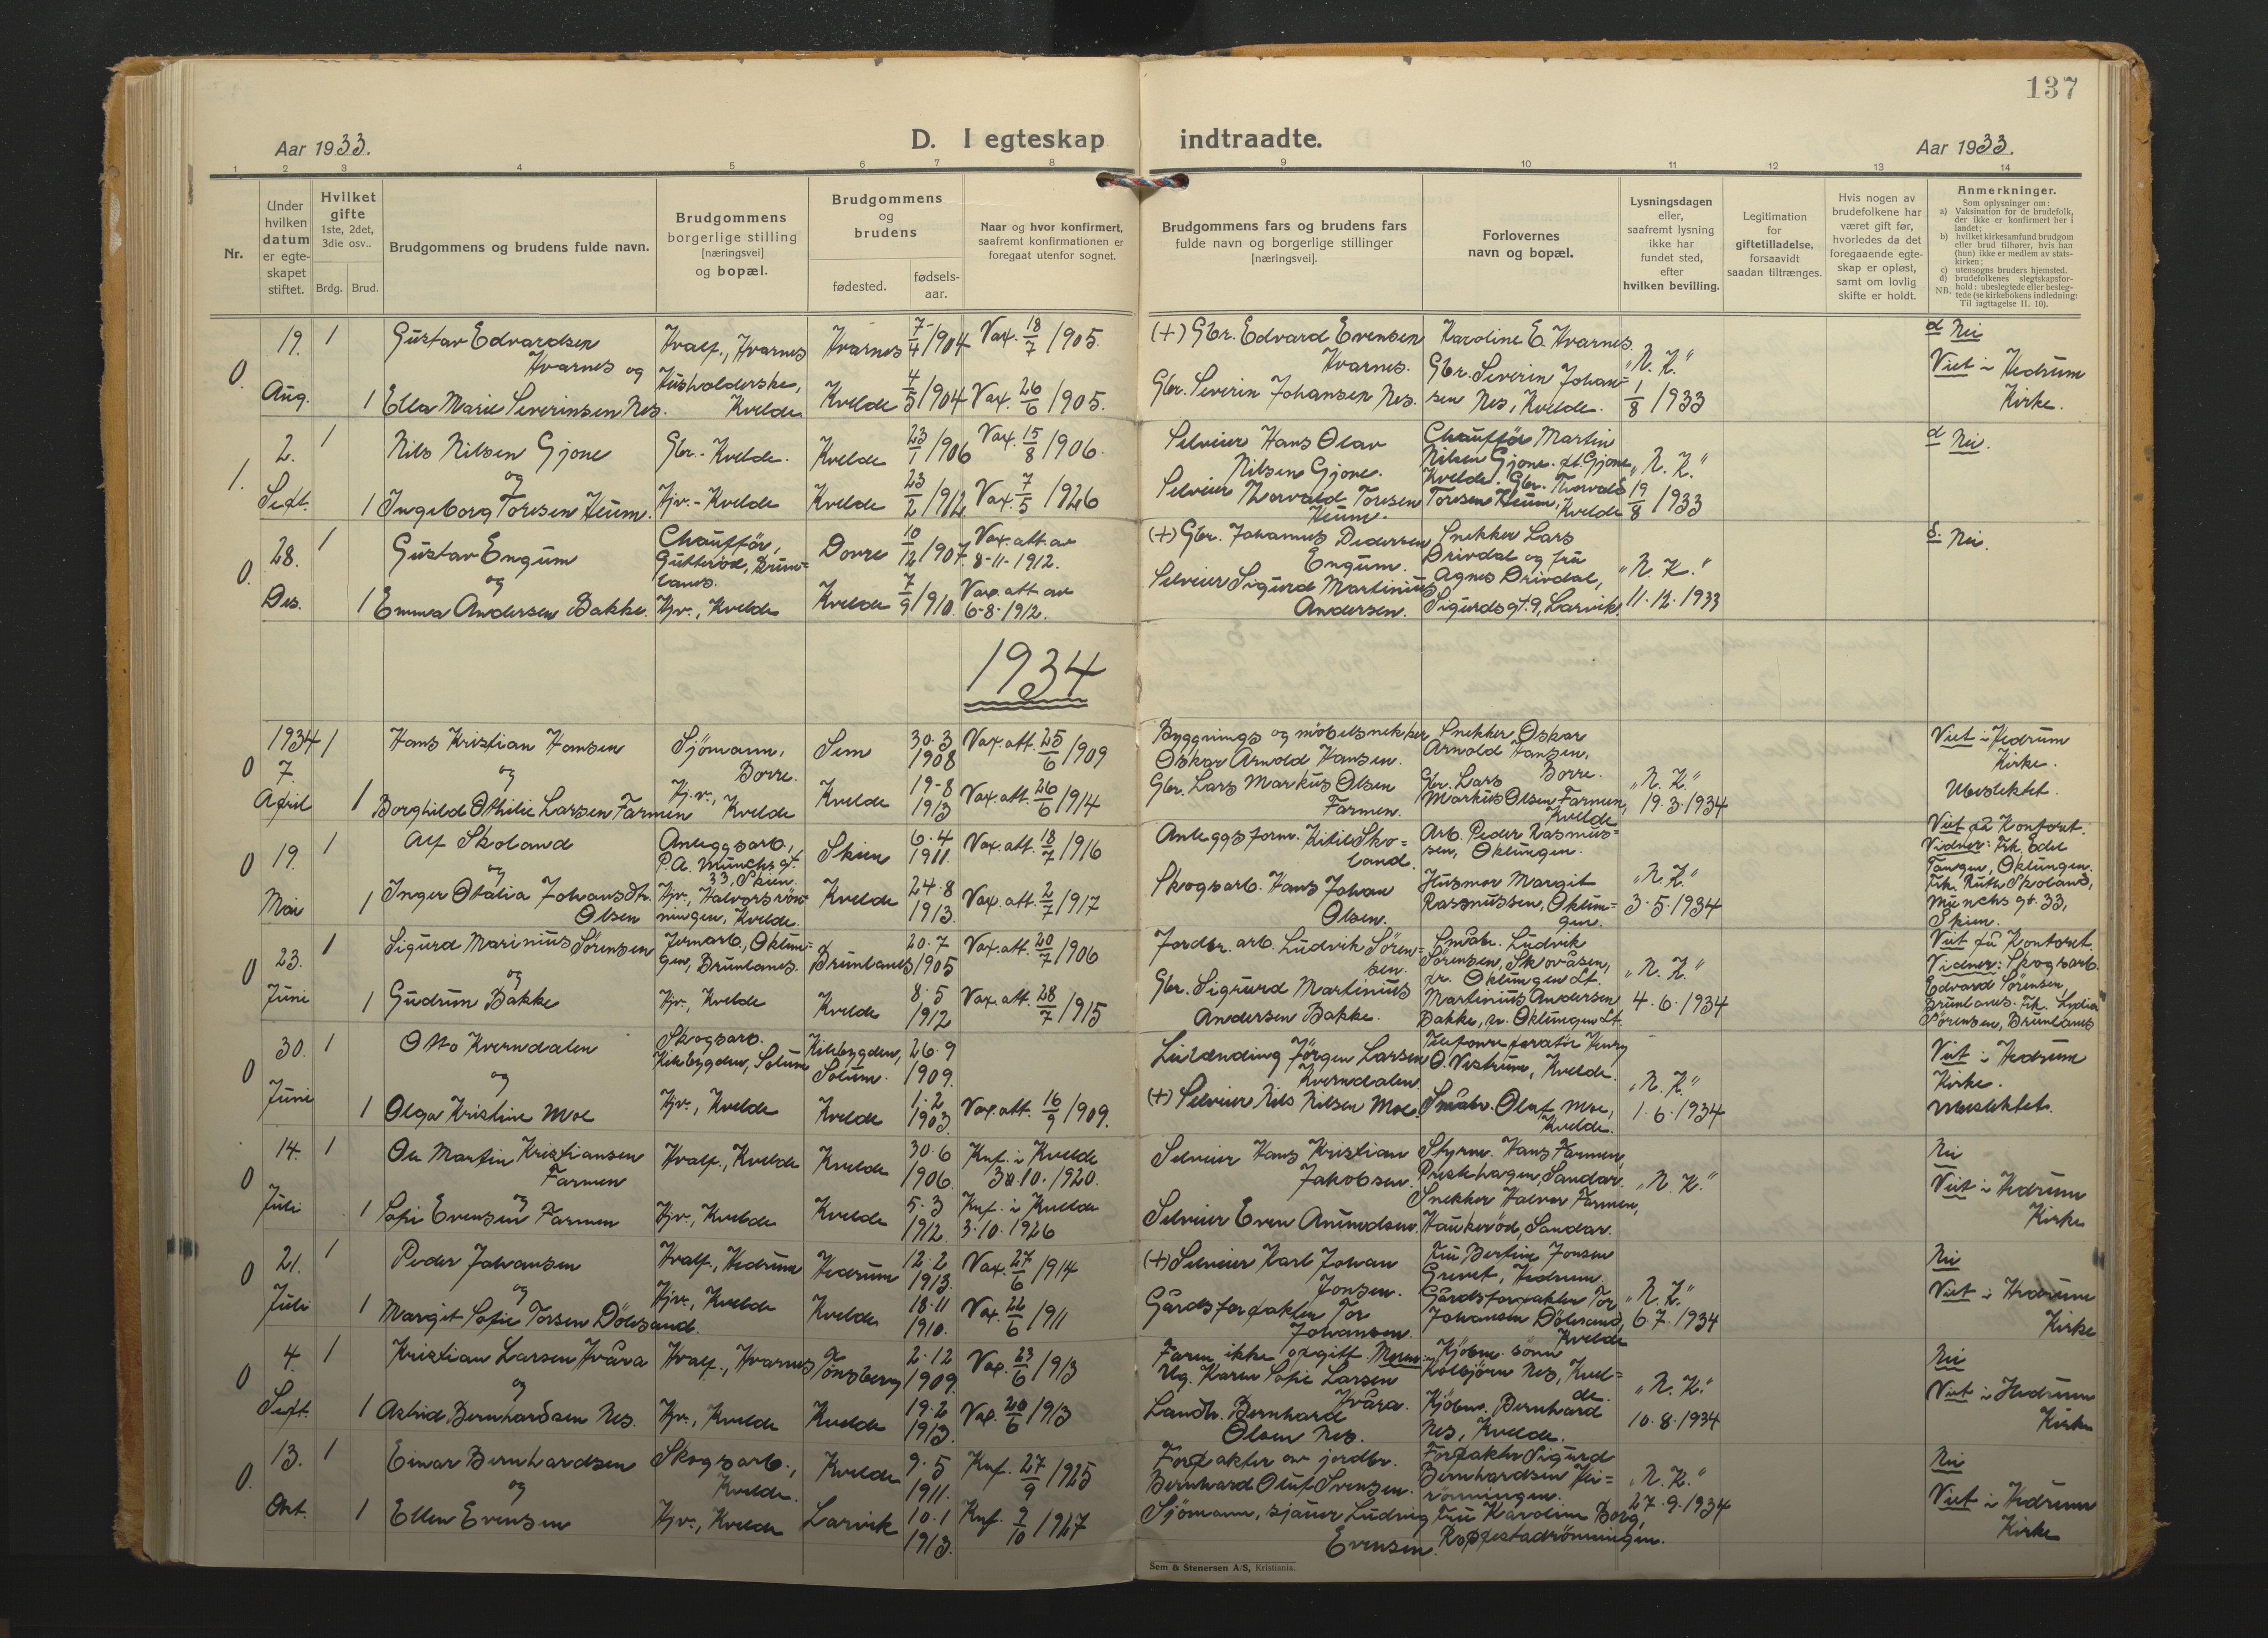 137
Aar 1933.
D. I egteskap indtraadte.
Aar 1933.
1 2 3 4 5 6 7 8 9 10 11 12 13 14
Nr.
Under
hvilken
datum
er egte-
skapet
stiftet.
Hvilket
gifte
1ste, 2det,
3die osv..
Brdg. Brud.
Brudgommens og brudens fulde navn.
Brudgommens
borgerlige stilling
[næringsvei]
og bopæl.
Brudgommens
og
brudens
fødested.
fødsels-
aar.
Naar og hvor konfirmert,
saafremt konfirmationen er
foregaat utenfor sognet.
Brudgommens fars og brudens fars
fulde navn og borgerlige stillinger
[næringsvei].
Forlovernes
navn og bopæl.
Lysningsdagen
eller,
saafremt lysning
ikke har
fundet sted,
efter
hvilken bevilling.
Legitimation
for
giftetilladelse,
forsaavidt
saadan tiltrænges.
Hvis nogen av
brudefolkene har
været gift før,
hvorledes da det
foregaaende egte-
skap er opløst,
samt om lovlig
skifte er holdt.
Anmerkninger.
Som oplysninger om:
a) Vaksination for de brudefolk,
der ikke er konfirmert her i
landet;
b) hvilket kirkesamfund brudgom
eller brud tilhører, hvis han
(hun) ikke er medlem av stats-
kirken;
c) utensogns bruders hjemsted.
d) brudefolkenes slegtskapsfor-
hold: ubeslegtede eller besleg-
tede (se kirkebokens indledning:
NB. Til iagttagelse II. 10).
0.
19.
Aug.
1
Gustav Edvardsen
Hvarnes og
1 Ella Marie Severinsen Nes.
Hvalf., Hvarnes
Husholderske,
Kvelde
Hvarnes 7/4 1904 Vax. 18/7 1905.
Kvelde 4/5 1904 Vax. 26/6 1905.
(+) Gbr. Edvard Evensen
Hvarnes.
Gbr. Severin Johansen Nes.
Karoline E. Hvarnes.
Gbr. Severin Johan=
sen Nes, Kvelde.
"N. K."
1/8 1933
d Nei
Viet i Hedrum
Kirke.
1.
2.
Sept.
1
Nils Nilsen Gjone
og
1 Ingeborg Toresen Heum.
Gbr. - Kvelde.
Hjv. - Kvelde
Kvelde 23/1 1906 Vax. 15/8 1906.
Kvelde 23/2 1912 Vax. 7/5 1926
Selveier Hans Olav
Nilsen Gjone.
Selveier Thorvald Toresen
Heum.
Chauffør Martin
Nilsen Gjone. pt. Gjone
Kvelde. Gbr. Thorvald
Toresen Heum,
Kvelde
"N. K."
19/8 1933
d Nei.
0.
28.
Des.
1
Gustav Engum
og
1 Emma Andersen Bakke.
Chauffør,
Gutterød, Brun=
lanes.
Hjv., Kvelde
Dovre 10/12 1907. Vax. att. av
8-11-1912.
Kvelde 7/9 1910. Vax. att. av
6-8-1912.
(+) Gbr. Johannes Pedersen
Engum.
Selveier Sigurd Martinius
Andersen.
Snekker Lars
Drivdal og fru
Agnes Drivdal,
Sigurdsgt. 9, Larvik.
"N. K."
11.12.1933
d. Nei.
1934
0
1934
7.
April
1
Hans Kristian Hansen
og
1 Borghild Othilie Larsen Farmen
Sjömann,
Borre.
Hj.v., Kvelde
Sem 30.3 1908 Vax. att. 25/6 1909
Kvelde 19-8 1913 Vax. att. 26/6 1914
Byggnings og möbelsnekker
Oskar Arnold Hansen.
Gbr. Lars Markus Olsen
Farmen.
Snekker Oskar
Arnold Hansen,
Borre.
Gbr. Lars
Markus Olsen Farmen,
Kvelde
"N. K."
19.3.1934
Viet i Hedrum
Kirke.
Ubeslektet.
0
19.
Mai
1
Alf Skoland
og
1 Inger Otalia Johansdt.
Olsen
Anleggsarb.,
P.A. Munchs gt.
33, Skien.
Hjv., Halvorsrön=
ningen, Kvelde.
Skien 6.4 1911. Vax. att. 18/7 1916
Kvelde 24.8 1913. Vax. att. 2/7 1917
Anleggsform. Kitil Sko=
land.
Skogsarb. Hans Johan
Olsen.
Arb. Peder Rasmus=
sen, Oklungen.
Husmor Margit
Rasmussen, Oklun=
gen.
"N. K."
3.5.1934
Viet på Kontoret.
Vidner: Frk. Edel
Tangen, Oklungen.
Frk. Ruth Skoland,
Munchs gt. 33,
Skien.
0
23.
Juni
1
Sigurd Marinius Sörensen
og
1 Gudrun Bakke
Jernarb., Oklun=
gen, Brunlanes.
Hjv., Kvelde
Brunlanes 20.7 1905 Vax. att. 20/7 1906
Kvelde 8.5 1912 Vax. att. 28/7 1915
Jordbr. arb. Ludvik Sören=
sen.
Gbr. Sigurd Martinius
Andersen Bakke.
Småbr. Ludvik
Sörensen, Skovåsen,
pr. Oklungen st.
Martinius Andersen
Bakke, pr. Oklungen st.
"N. K."
4.6.1934
Viet på Kontoret.
Vidner: Skogsarb.
Edvard Sörensen,
Brunlanes. Frk. Lydia
Sörensen, Brunlanes
0
30.
Juni
1
Otto Kverndalen
og
1 Olga Kristine Moe
Skogsarb.
Kilebygden, Solum
Hjv., Kvelde
Kilebygden,
Solum. 26.9 1909.
Kvelde 1.2 1903. Vax. att. 16/9 1909.
Leilending Jörgen Larsen
Kverndalen.
(+) Selveier Nils Nilsen Moe.
Henry
O. Vestrum, Kvelde.
Småbr. Olaf Moe,
Kvelde.
"N. K."
1.6.1934
Viet i Hedrum
Kirke.
Ubeslektet.
0
14.
Juli
1
Ole Martin Kristiansen
Farmen
og
1 Sofie Evensen Farmen
Hvalf., Kvelde
Hjv., Kvelde
Kvelde 30.6 1906. Knf. i Kvelde
30.10.1920.
Kvelde 5.3 1912. Knf. i Kvelde
3.10.1926
Selveier Hans Kristian
Jakobsen.
Selveier Even Anundsen.
Styrm. Hans Farmen,
Prestehagen, Sandar.
Snekker Halvor Farmen,
Haukeröd, Sandar.
"N. K."
Nei
Viet i Hedrum
Kirke
0
21.
Juli
1
Peder Johansen
og
1 Margit Sofie Torsen Dölesand.
Hvalf., Hedrum
Hjv., Kvelde
Hedrum 12.2 1913. Vax. 27/6 1914
Kvelde 18.11 1910. Vax. 22/6 1911
(+) Selveier Karl Johan
Jonsen.
Gårdsforpakter Tor
Johansen.
Fru Bertine Jonsen
Grevet, Hedrum.
Gårdsforpakter Tor
Johansen Dölesand,
Kvelde
"N. K."
6.7.1934
Nei
Viet i Hedrum
Kirke
0
4.
Sept.
1
Kristian Larsen Hvåra
og
1 Astrid Bernhardsen Nes.
Hvalf., Hvarnes
Hjv., Kvelde
Tönsberg 2.12 1909. Vax. 23/6 1913
Kvelde 19.2 1913. Vax. 20/6 1913
Faren ikke opgitt. Moren:
Ug. Karen Sofie Larsen
Hvåra.
Landh. Bernhard
Olsen Nes.
Kjöbm. sönn
Kolbjörn Nes, Kvel=
de.
Kjöbm. Bernhard
Nes, Kvelde.
"N. K."
10.8.1934
Nei
Viet i Hedrum
Kirke
0.
13.
Okt.
1
Einar Bernhardsen
og
1 Ellen Evensen
Skogsarb.,
Kvelde.
Hjv., Kvelde
Kvelde 9.5 1911. Knf. 27/9 1925
Larvik 10.1 1913. Knf. 2/10 1927
Forpakter av jordbr.
Bernhard Oluf Svensen.
Sjömann, sjauer Ludvig
Evensen.
Forpakter Sigurd
Bernhardsen Hei=
rönningen.
Fru Karoline Borg,
Roppestadrönningen.
"N. K."
27.9.1934
Nei
Viet i Hedrum
Kirke
Sem & Stenersen A/S, Kristiania.